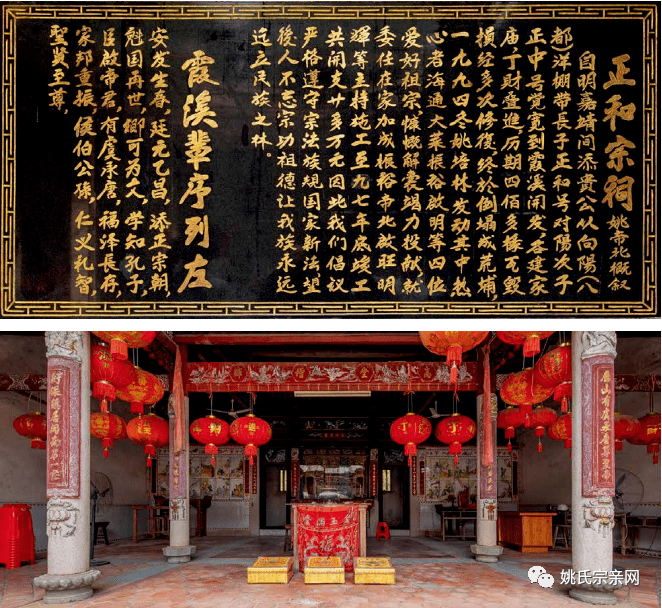 正和宗祠 姚帝北概叙
自明嘉靖间添貴公从向陽八
都)洋棚带長子正和号对陽次子
正中号宽到霞溪建家
庙,丁財叠進,历期四佰多瓦毀
損经多次修復终於倒塌成荒埔,
一九九四冬姚培林发动其中热
心者海通大菜振裕啟明等四位
爱好祖宗慷慨解囊竭力投献,就
委任在家加成振裕帝北啟旺明
輝等主持施工至九七年底竣工
共開支廿多万元因此我们倡议
严格遵守宗法族规国家新法望
後人不忘宗功祖德让我族永远
迄立民族之林。
霞溪輩序列左
安发生春,廷元乙昌,添正宗朝,
勉国再世,卿可为文,学知孔子,
臣啟帝君,有虞承唐,福泽長存,
家邦重振,侯伯公孫,仁义礼智,
聖賢至尊,
姚氏宗亲网